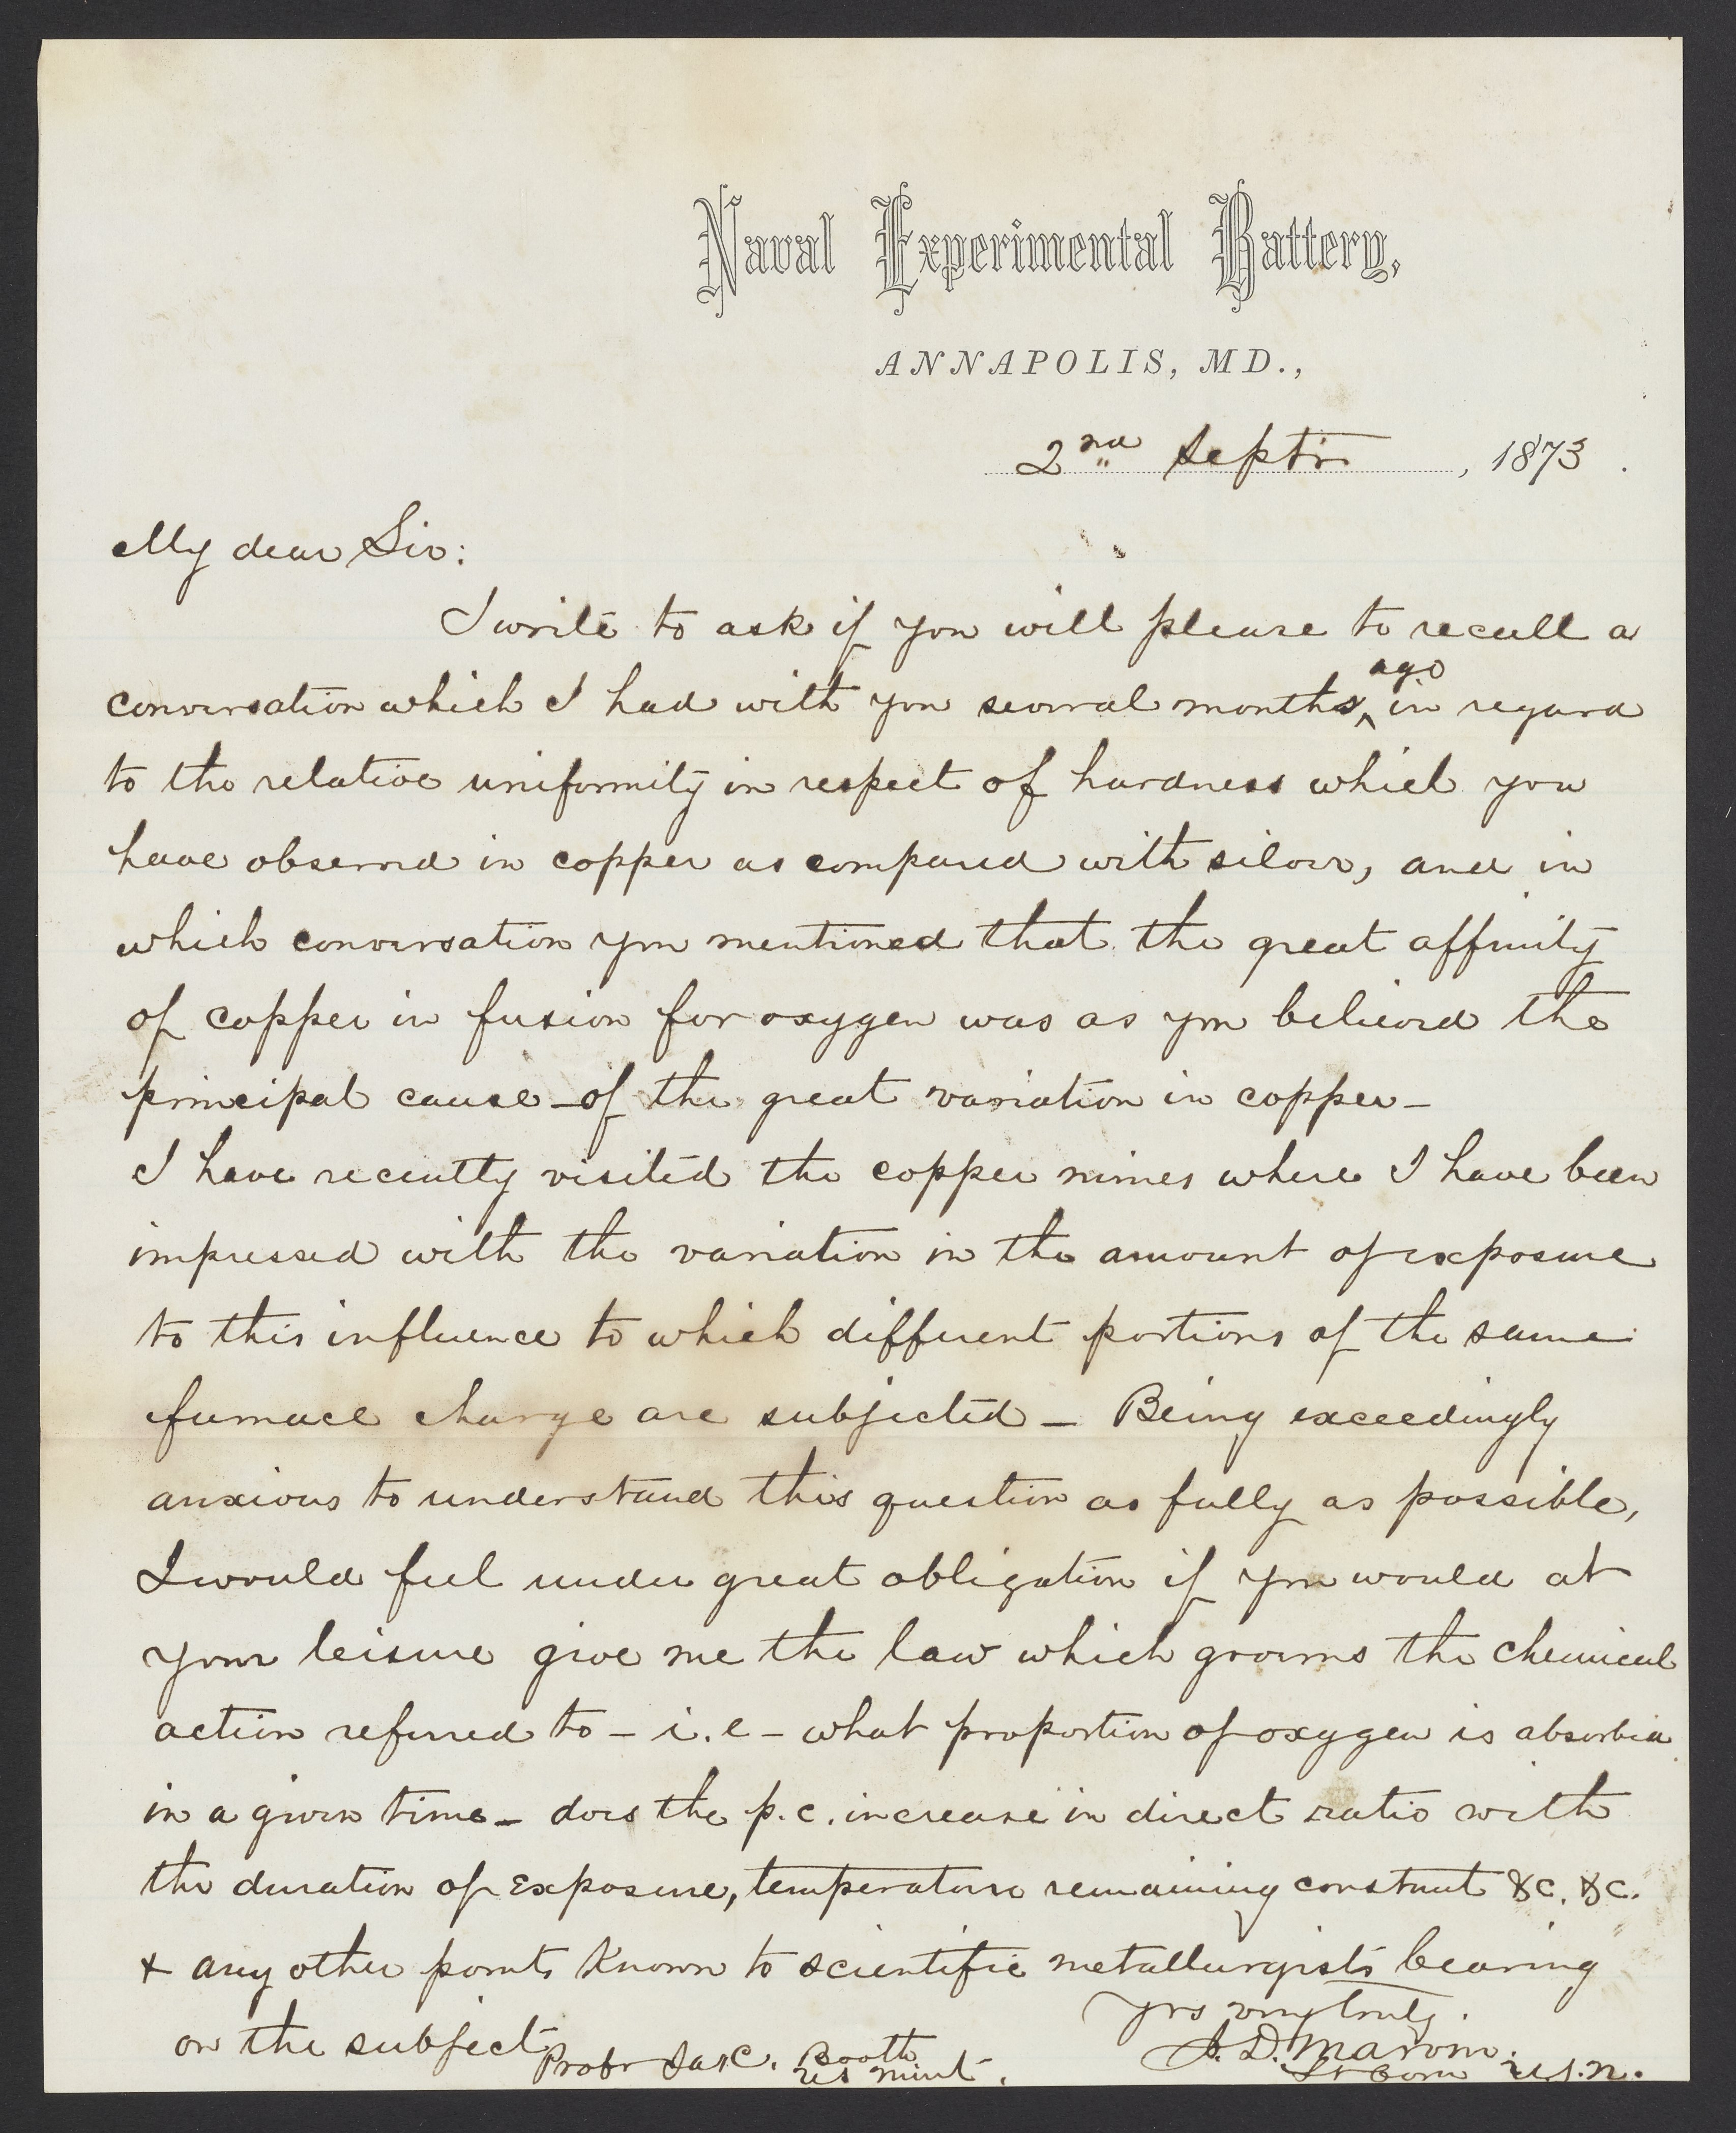 Naval Experimental Battery,
ANNAPOLIS, MD.,
2nd Septr, 1873.
My dear Sir:
I write to ask if you will please to recall a
conversation which I had with you several months ago in regard
to the relative uniformity in respect of hardness which you
have observed in copper as compared with silver, and in
which conversation you mentioned that the great affinity
of copper in fusion for oxygen was as you believed the
principal cause - of the great variation in copper -
I have recently visited the copper mines where I have been
impressed with the variation in the amount of exposure
to this influence to which different portions of the same
furnace charge are subjected - Being exceedingly
anxious to understand this question as fully as possible,
I would feel under great obligation if you would at
your leisure give me the law which governs the chemical
action referred to - i.e - what proportion of oxygen is absorbed
in a given time - does the p.c. increase in direct ratio with
the duration of exposure, temperature remaining constant &c. &c.
& any other points known to scientific metallurgists bearing
on the subject
Yrs very truly.
J.D. Marvin.
Lt Com U.S.N.
Profr Jas C. Booth
US Mint.